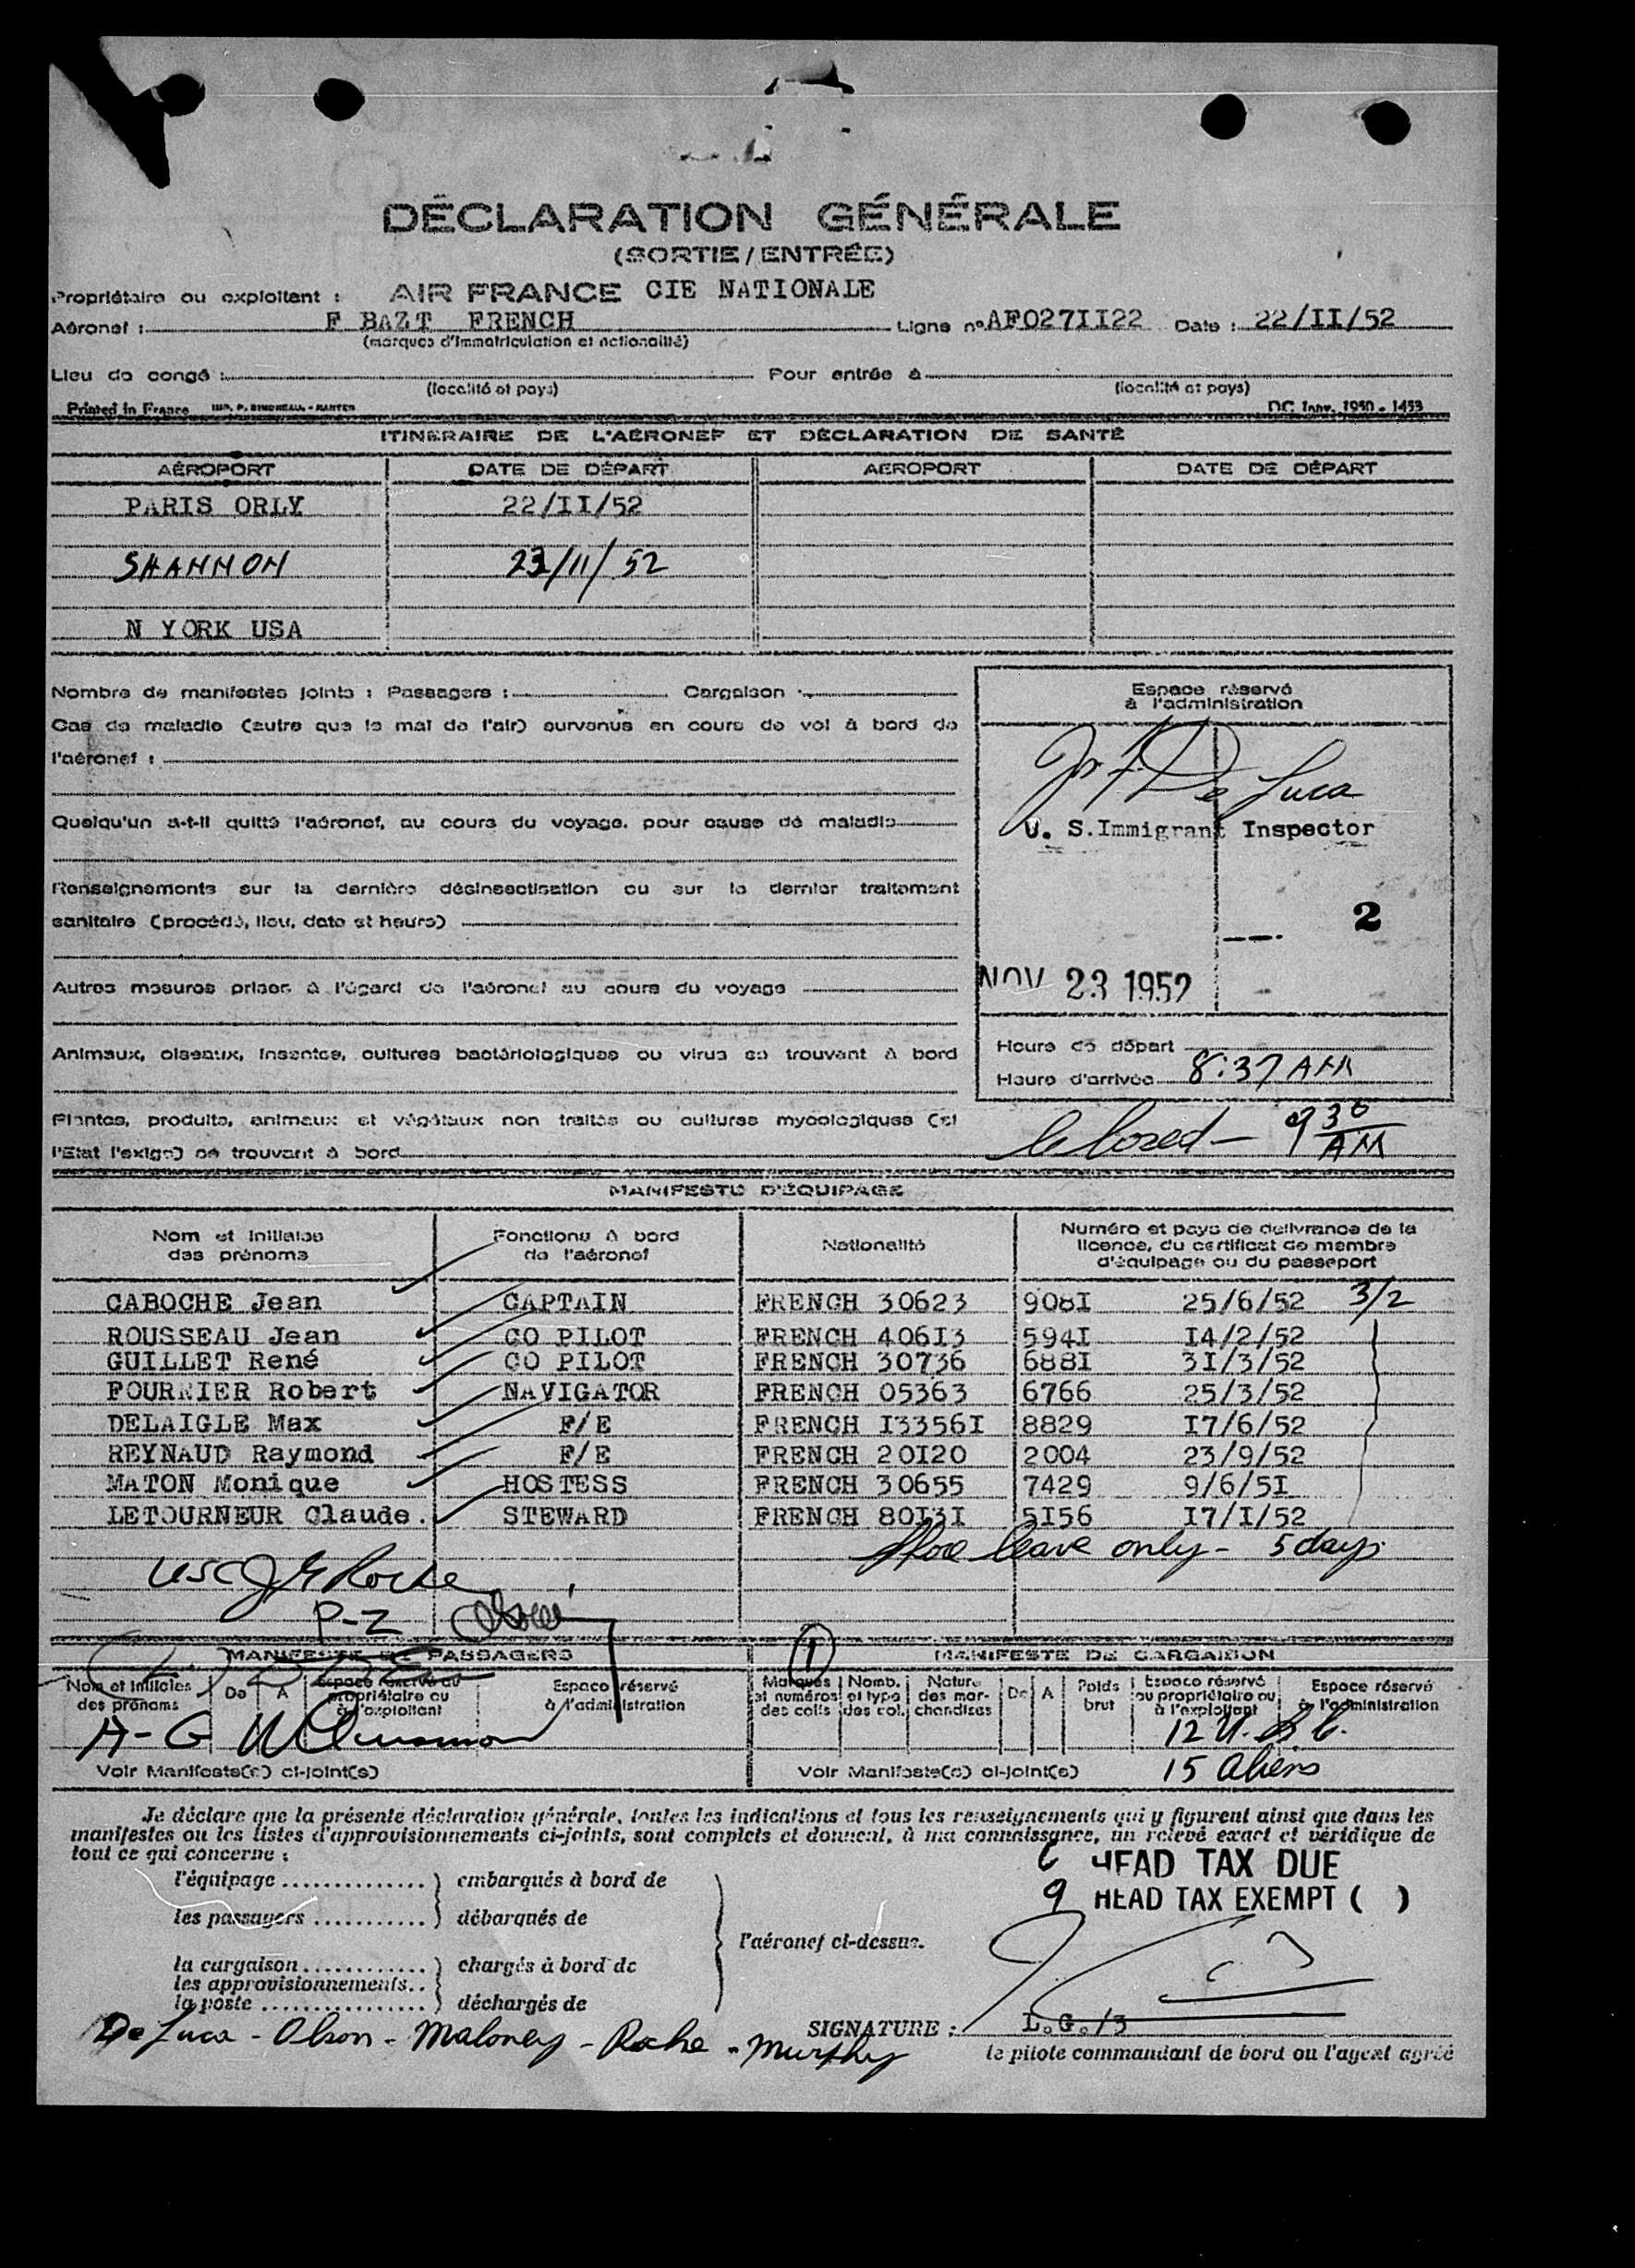 DÉCLARATION GÉNÉRALE
(SORTIE/ENTRÉE)
Propriétaire ou exploitant : AIR FRANCE CIE NATIONALE
Aéronef : F BAZT FRENCH Ligne nº AF027II22 Date : 22/II/52
(marques d'immatriculation et nationalité)
Lieu de congé : Pour entrée à
(localité et pays) (localité et pays)
Printed in France IMP. P. SIMONEAU. - NANTES DC Janv. 1950 - 1453
ITINÉRAIRE DE L'AÉRONEF ET DÉCLARATION DE SANTÉ
AÉROPORT DATE DE DÉPART AEROPORT DATE DE DÉPART
PARIS ORLY 22/II/52
SHANNON 23/11/52
N YORK USA
Nombre de manifestes joints : Passagers : Cargaison :
Cas de maladie (autre que le mal de l'air) survenus en cours de vol à bord de
l'aéronef :
Quelqu'un a-t-il quitté l'aéronef, au cours du voyage, pour cause de maladie
Renseignements sur la dernière désinsectisation ou sur le dernier traitement
sanitaire (procédé, lieu, date et heure)
Autres mesures prises à l'égard de l'aéronef au cours du voyage
Animaux, oiseaux, insectes, cultures bactériologiques ou virus se trouvant à bord
Plantes, produits, animaux et végétaux non traités ou cultures mycologiques (si
l'Etat l'exige) se trouvant à bord
Espace réservé
à l'administration
De Luca
U. S. Immigrant Inspector
2
NOV 23 1952
Heure de départ
Heure d'arrivée 8:37 AM
Closed - 9 30 AM
MANIFESTE D'ÉQUIPAGE
Nom et initiales des prénoms Fonctions à bord de l'aéronef Nationalité Numéro et pays de délivrance de la licence, du certificat de membre d'équipage ou du passeport
CABOCHE Jean CAPTAIN FRENCH 30623 908I 25/6/52 3/2
ROUSSEAU Jean CO PILOT FRENCH 406I3 594I I4/2/52
GUILLET René CO PILOT FRENCH 30736 688I 3I/3/52
FOURNIER Robert NAVIGATOR FRENCH 05363 6766 25/3/52
DELAIGLE Max F/E FRENCH I3356I 8829 I7/6/52
REYNAUD Raymond F/E FRENCH 20I20 2004 23/9/52
MATON Monique HOSTESS FRENCH 30655 7429 9/6/5I
LETOURNEUR Claude. STEWARD FRENCH 80I3I 5I56 I7/I/52
Shore leave only - 5 days
USC Roche
P-Z
MANIFESTE DE PASSAGERS 1 MANIFESTE DE CARGAISON
Nom et initiales des prénoms De A Espace réservé au propriétaire ou à l'exploitant Espace réservé à l'administration Marques et numéros des colis Nomb. et type des col. Nature des marchandises De A Poids brut Espace réservé au propriétaire ou à l'exploitant Espace réservé à l'administration
A-G 12 U.S.C.
Voir Manifeste(s) ci-joint(s) Voir Manifeste(s) ci-joint(s) 15 Aliens
Je déclare que la présente déclaration générale, toutes les indications et tous les renseignements qui y figurent ainsi que dans les
manifestes ou les listes d'approvisionnements ci-joints, sont complets et donnent, à ma connaissance, un relevé exact et véridique de
tout ce qui concerne :
6 HEAD TAX DUE
9 HEAD TAX EXEMPT ( )
l'équipage .............. embarqués à bord de
les passagers ........... débarqués de
l'aéronef ci-dessus.
la cargaison ............ chargés à bord de
les approvisionnements..
la poste ................ déchargés de
De Luca - Olson - Maloney - Roche - Murphy
SIGNATURE : L.G./3
le pilote commandant de bord ou l'agent agréé